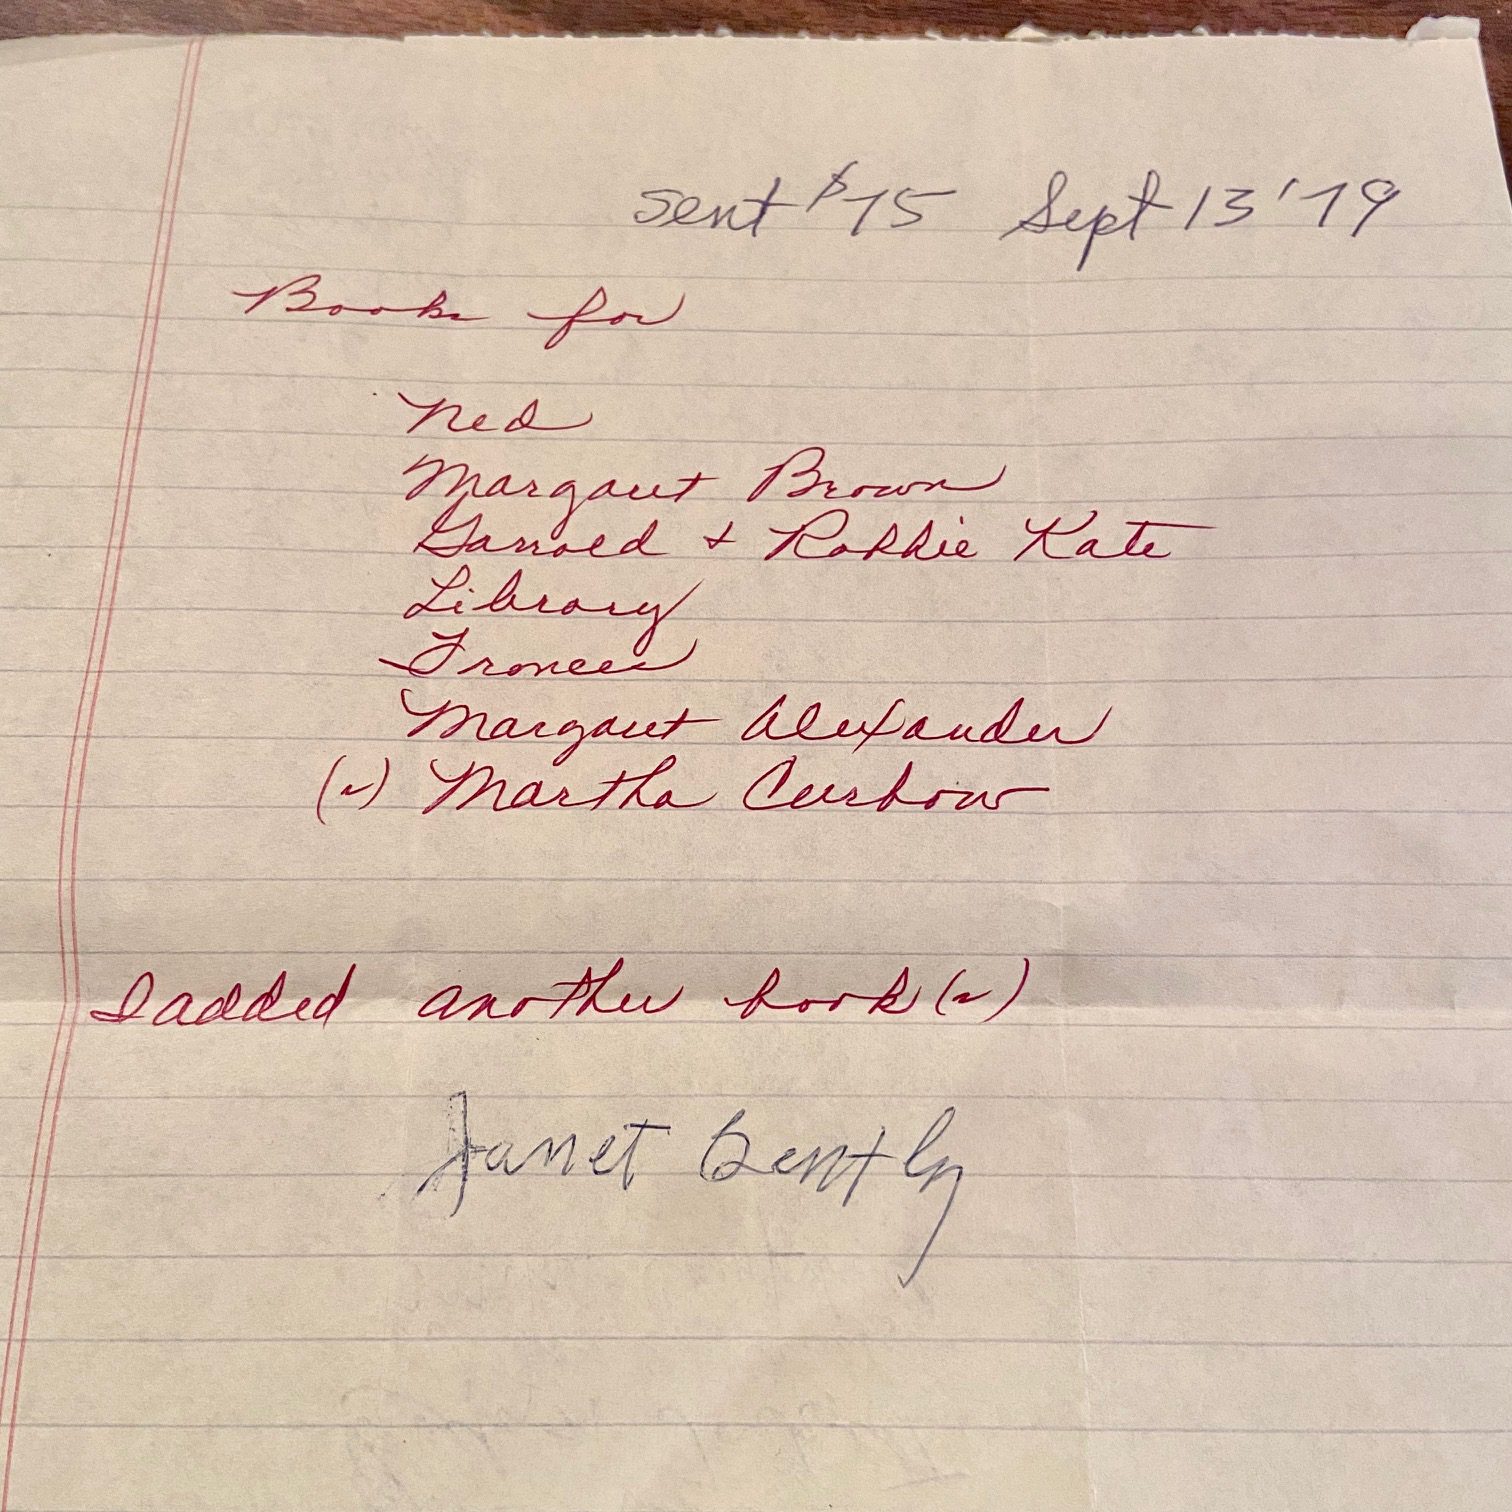 sent $75 Sept 13 '79
Books for
Ned
Margaret Brown
Garrold & Robbie Kate
Library
Frances
Margaret Alexander
(~) Martha Curbow
I added another book (~)
Janet Bently